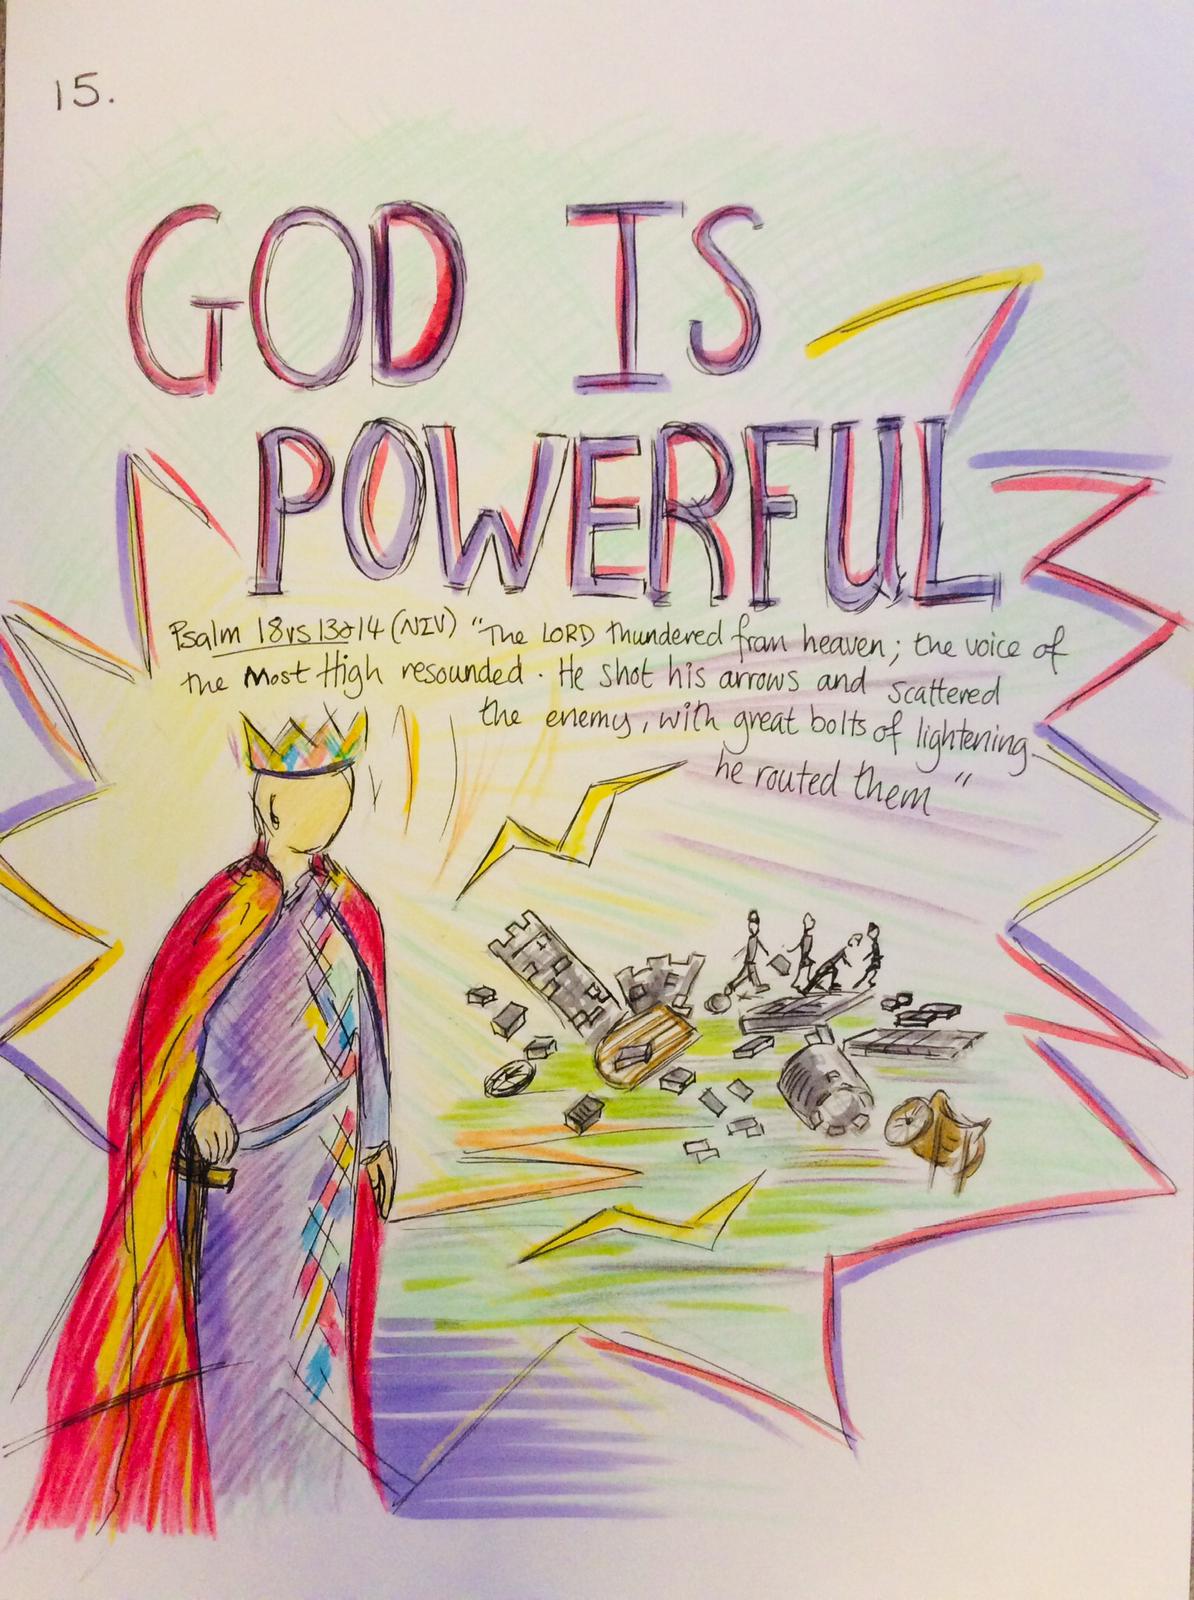 15.
GOD IS
POWERFUL
Psalm 18vs 13&14 (NIV) "The LORD thundered from heaven; the voice of
the Most High resounded. He shot his arrows and scattered
the enemy, with great bolts of lightening
he routed them"